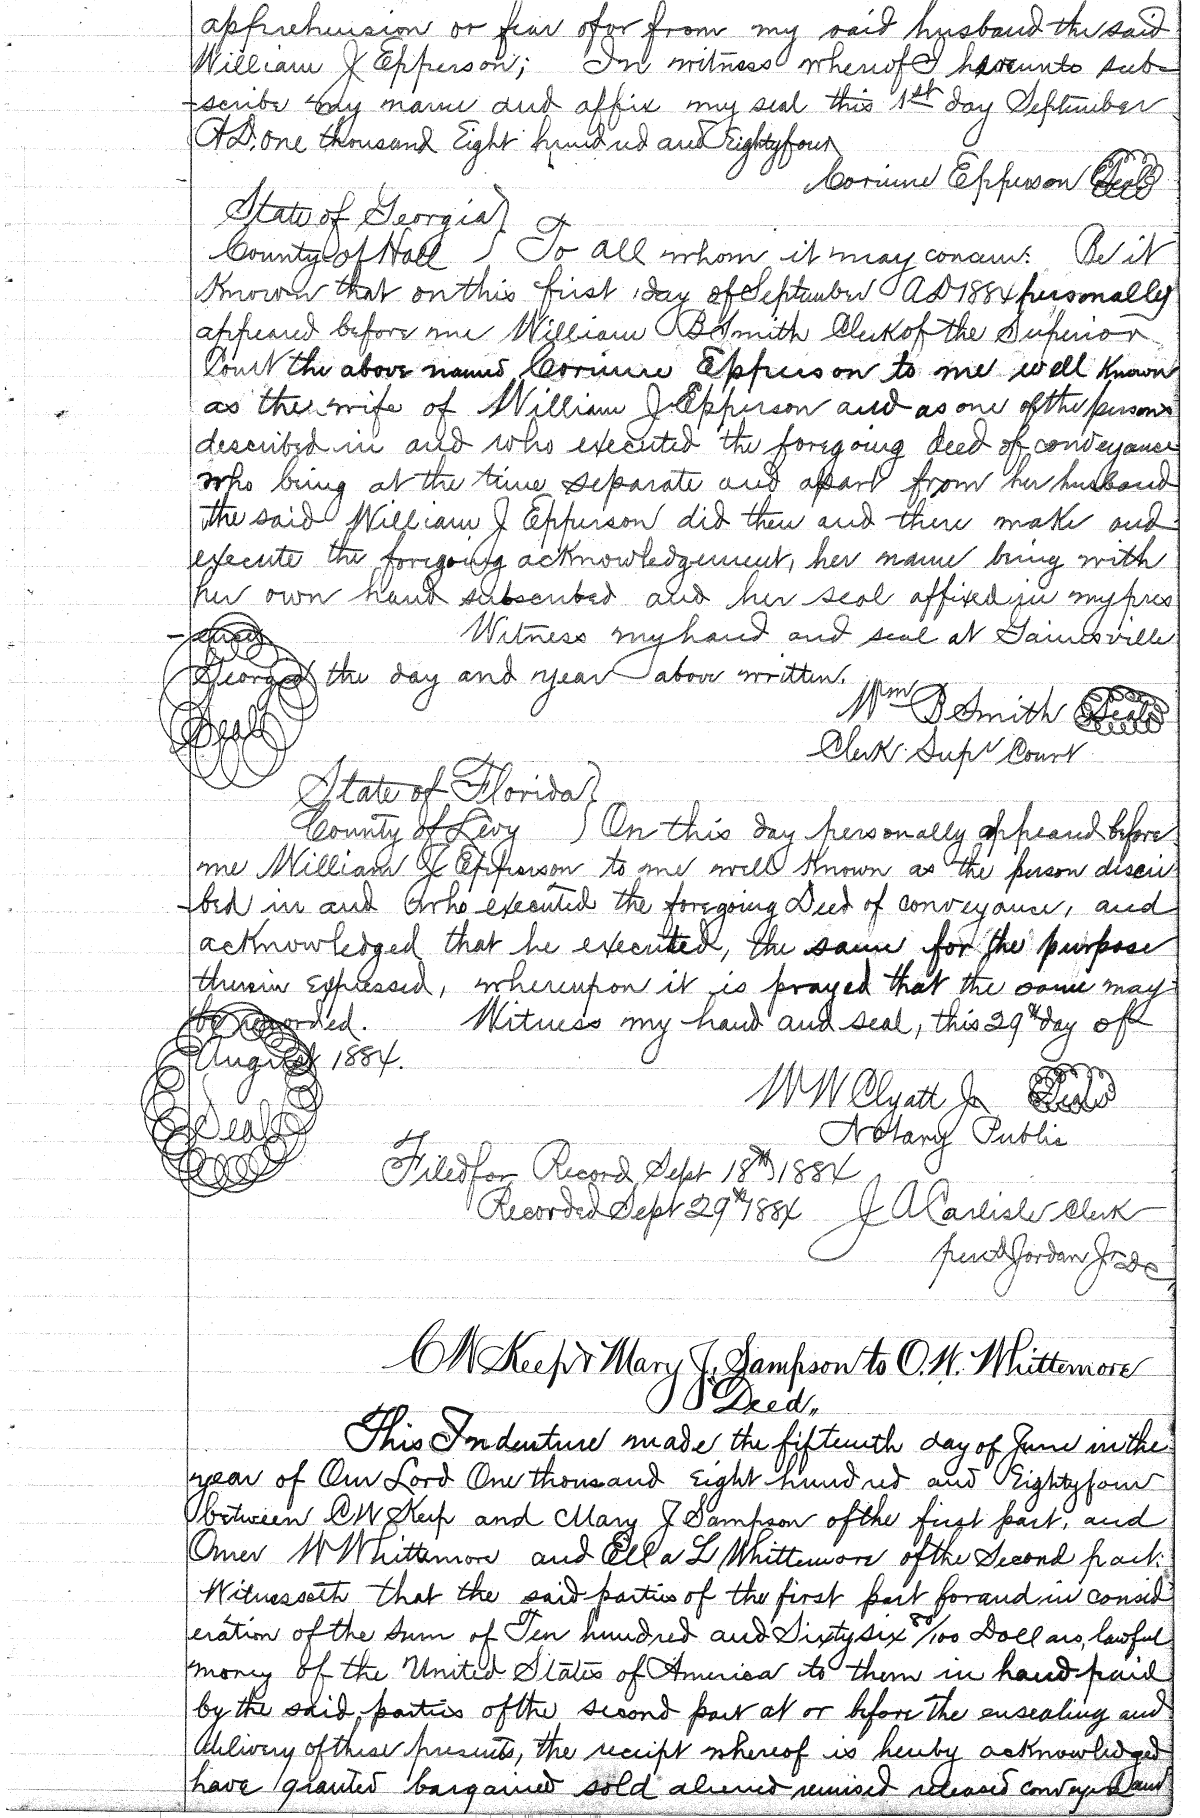 apprehension or fear of or from my said husband the said
William J Epperson; In witness whereof I hereunto sub-
scribe my name and affix my seal this 1st day September
A.D. one thousand Eight hundred and Eightyfour
Corinne Epperson Seal
State of Georgia }
County of Hall } To all whom it may concern: Be it
Known that on this first day of September A D 1884 personally
appeared before me William B Smith Clerk of the Superior
Court the above named Corinne Epperson to me well Known
as the wife of William J Epperson and as one of the persons
described in and who executed the foregoing deed of conveyance
who being at the time separate and apart from her husband
the said William J Epperson did then and there make and
execute the foregoing acknowledgement, her name being with
her own hand subscribed and her seal affixed in my pres
ence Witness my hand and seal at Gainesville
Georgia the day and year above written.
Seal
Wm B Smith Seal
Clerk Supr Court
State of Florida }
County of Levy } On this day personally appeared before
me William J Epperson to me well Known as the person discri
bed in and who executed the foregoing Deed of conveyance, and
acknowledged that he executed, the same for the purpose
therein expressed, whereupon it is prayed that the same may
be recorded. Witness my hand and seal, this 29th day of
August 1884.
Seal
W W Clyatt Jr Seal
Notary Public
Filed for Record Sept 18th 1884
Recorded Sept 29th 1884 J A Carlisle Clerk
Jordan Jr DC
C W Keep & Mary J. Sampson to O. W. Whittemore
Deed,,
This Indenture made the fifteenth day of June in the
year of Our Lord One thousand Eight hundred and Eightyfour
between C W Keep and Mary J Sampson of the first part, and
Omer W Whittemore and Ella L Whittemore of the Second part:
Witnesseth that the said parties of the first part for and in consid
eration of the sum of Ten hundred and Sixtysix 80/100 Dollars, lawful
money of the United States of America to them in hand paid
by the said parties of the second part at or before the ensealing and
delivery of these presents, the receipt whereof is hereby acknowledged
have granted bargained sold aliened remised released conveyed and